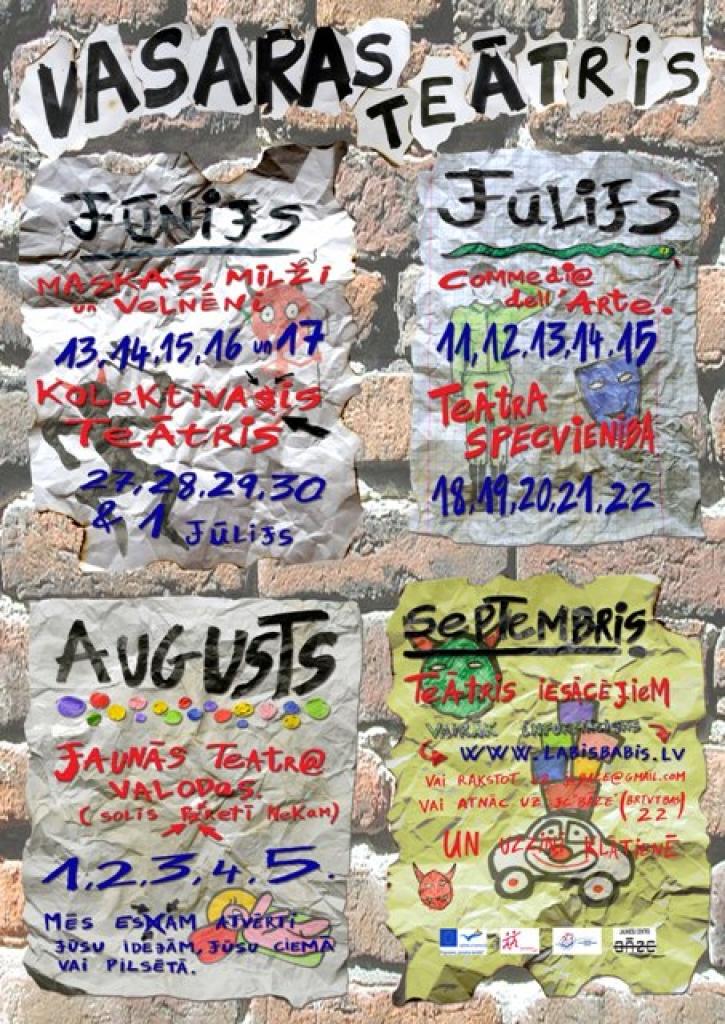 VASARAS TEĀTRIS
JŪNIJS
MASKAS, MILŽI
un VELNĒNI
13,14,15,16 un 17
KOLEKTĪVAIS
TEĀTRIS
27,28,29,30
& 1 JŪLIJS
JŪLIJS
Commedi@
dell'Arte.
11,12,13,14,15
TEĀTRA
SPECVIENĪBA
18,19,20,21,22
AUGUSTS
JAUNĀS TEATR@
VALODAS.
(SOLIS PRETĪ NEKAM)
1,2,3,4,5.
MĒS ESAM ATVĒRTI
JŪSU IDEJĀM, JŪSU CIEMĀ
VAI PILSĒTĀ.
SEPTEMBRIS
TEĀTRIS IESĀCĒJIEM
VAIRĀK
WWW.LABISBABIS.LV
VAI RAKSTOT @GMAIL.COM
VAI ATNĀC UZ JC BĀZE
22
UN UZZINI KLĀTIENĒ
BĀZE